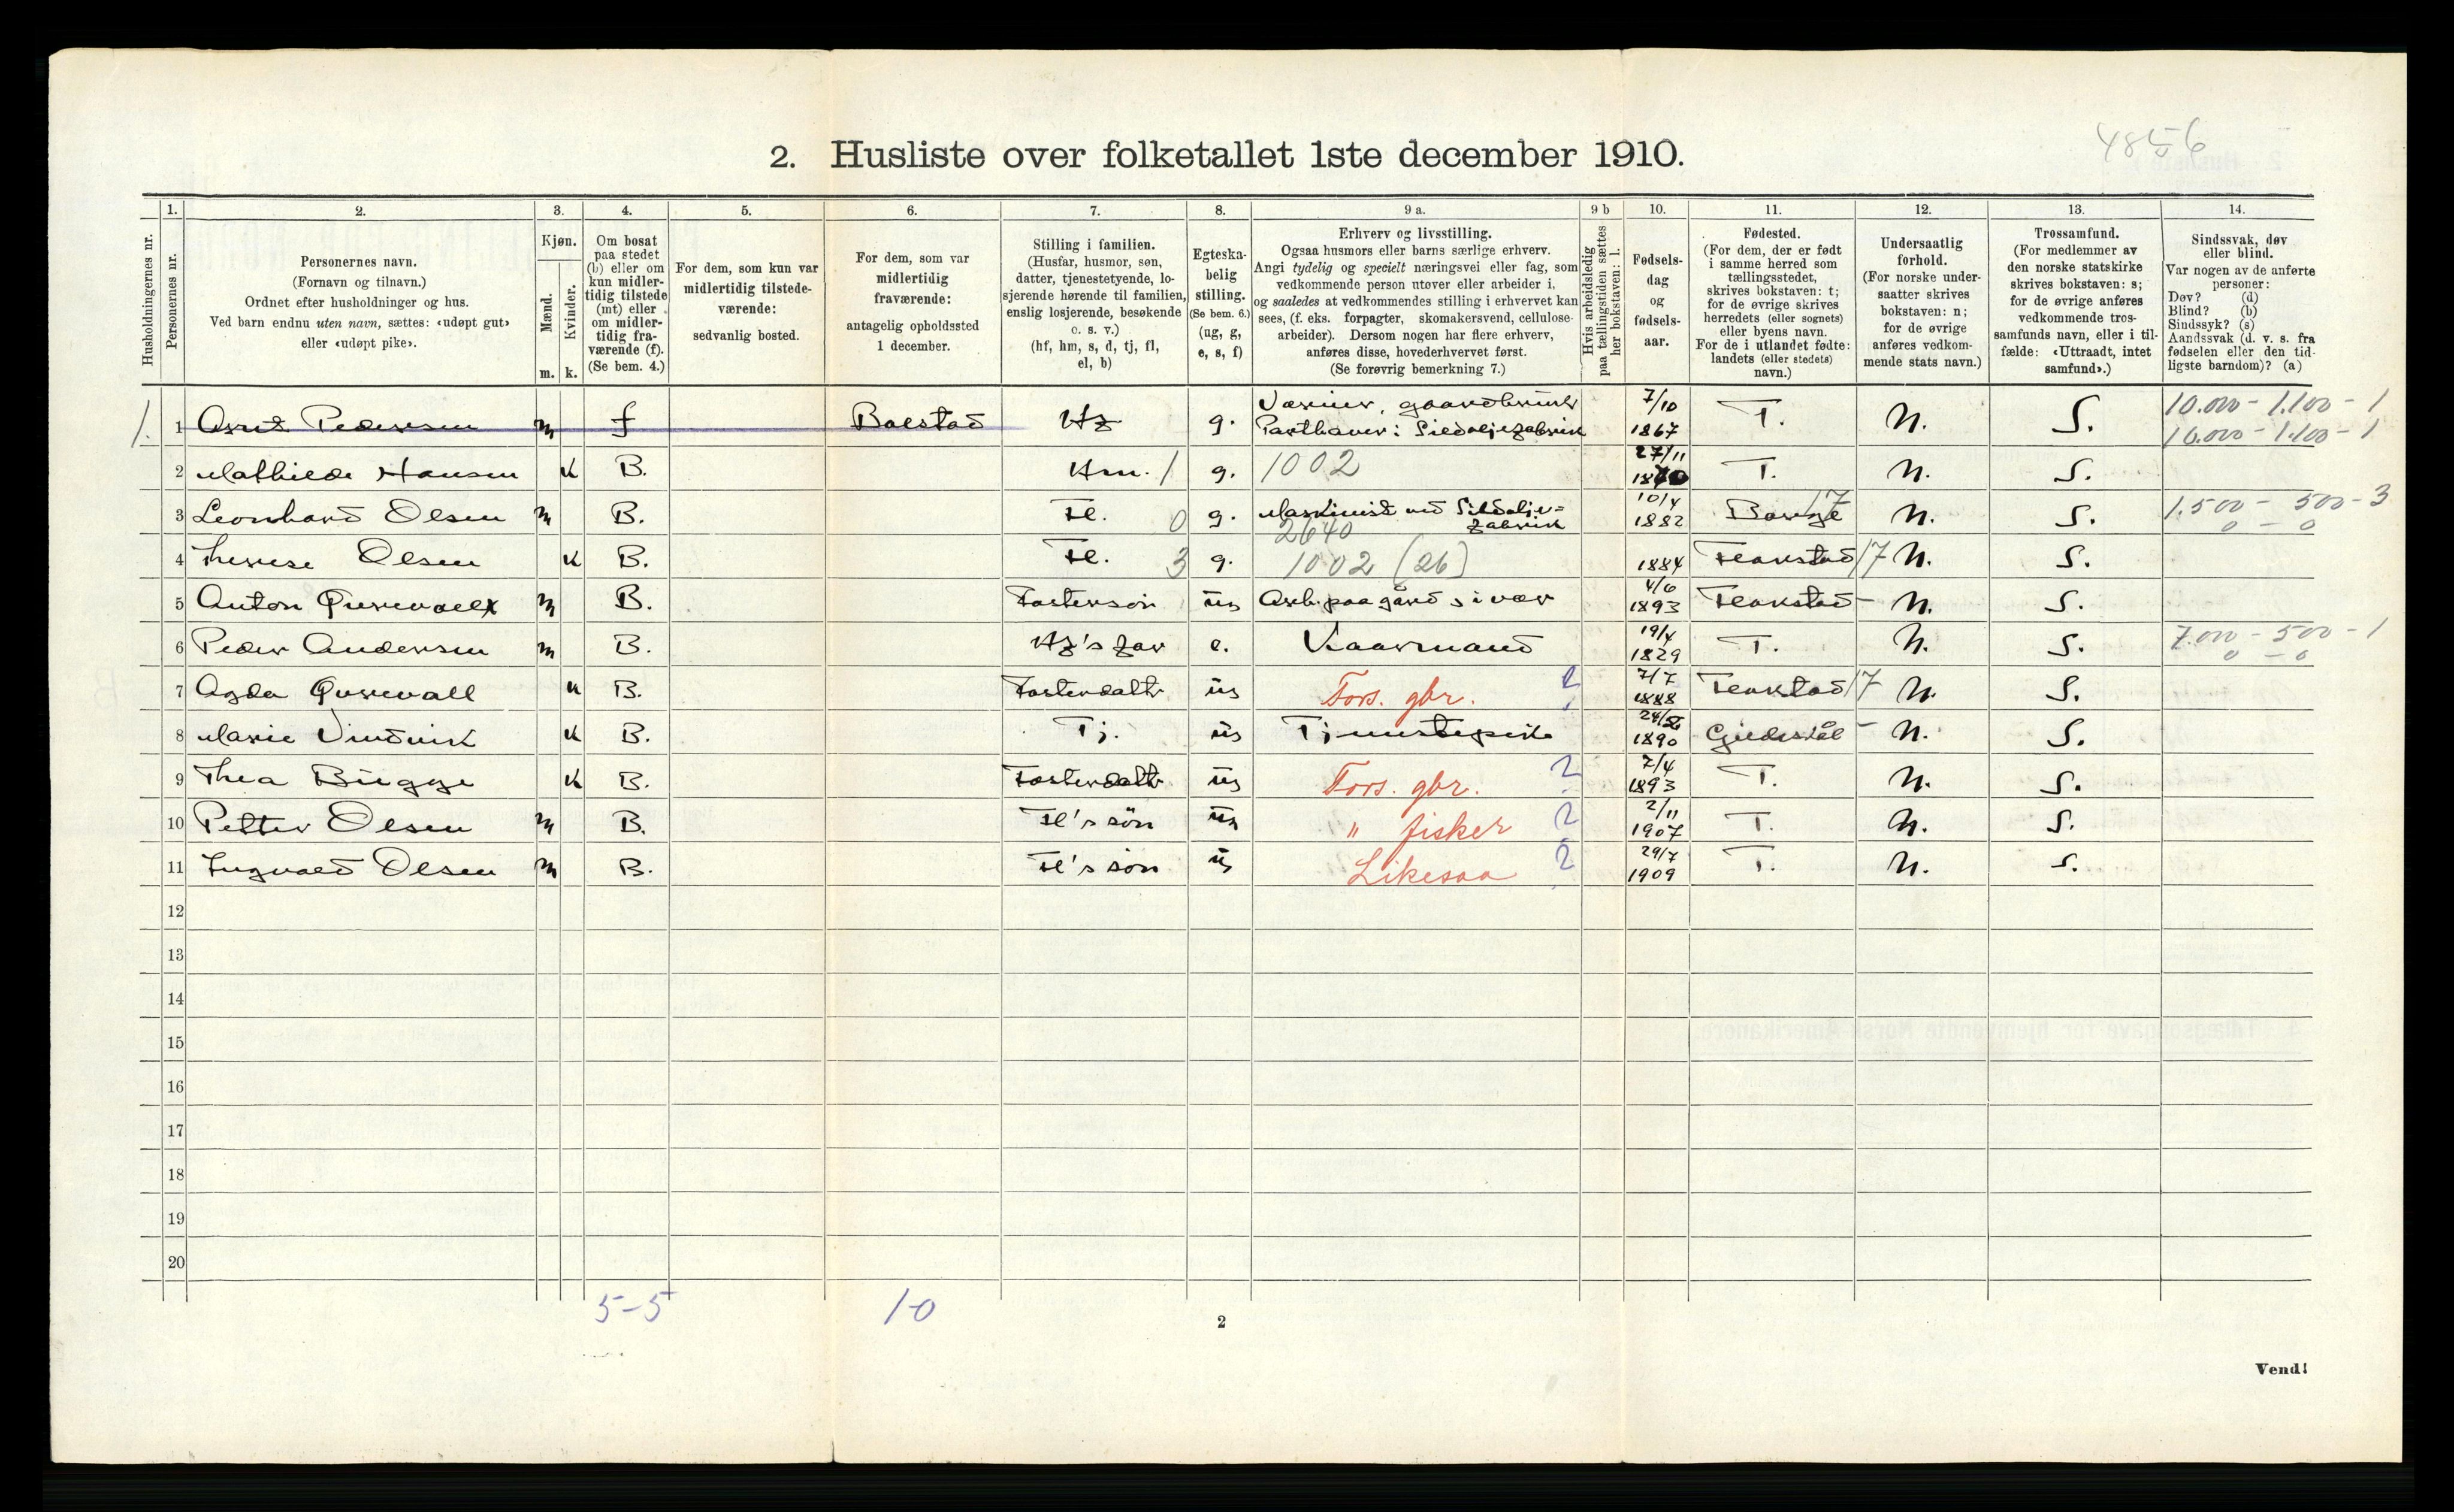 4856
2. Husliste over folketallet 1ste december 1910.
Husholdningernes nr.
1.
Personernes nr.
2.
Personernes navn.
(Fornavn og tilnavn.)
Ordnet efter husholdninger og hus.
Ved barn endnu uten navn, sættes: «udøpt gut»
eller «udøpt pike».
3.
Kjøn.
Mænd.
Kvinder.
m. k.
4.
Om bosat
paa stedet
(b) eller om
kun midler-
tidig tilstede
(mt) eller
om midler-
tidig fra-
værende (f).
(Se bem. 4.)
5.
For dem, som kun var
midlertidig tilstede-
værende:
sedvanlig bosted.
6.
For dem, som var
midlertidig
fraværende:
antagelig opholdssted
1 december.
7.
Stilling i familien.
(Husfar, husmor, søn,
datter, tjenestetyende, lo-
sjerende hørende til familien,
enslig losjerende, besøkende
o. s. v.)
(hf, hm, s, d, tj, fl,
el, b)
8.
Egteska-
belig
stilling.
(Se bem. 6.)
(ug, g,
e, s, f)
9 a.
Erhverv og livsstilling.
Ogsaa husmors eller barns særlige erhverv.
Angi tydelig og specielt næringsvei eller fag, som
vedkommende person utøver eller arbeider i,
og saaledes at vedkommendes stilling i erhvervet kan
sees, (f. eks. forpagter, skomakersvend, cellulose-
arbeider). Dersom nogen har flere erhverv,
anføres disse, hovederhvervet først.
(Se forøvrig bemerkning 7.)
9 b
Hvis arbeidsledig
paa tællingstiden sættes
her bokstaven: l.
10.
Fødsels-
dag
og
fødsels-
aar.
11.
Fødested.
(For dem, der er født
i samme herred som
tællingsstedet,
skrives bokstaven: t;
for de øvrige skrives
herredets (eller sognets)
eller byens navn.
For de i utlandet fødte:
landets (eller stedets)
navn.)
12.
Undersaatlig
forhold.
(For norske under-
saatter skrives
bokstaven: n;
for de øvrige
anføres vedkom-
mende stats navn.)
13.
Trossamfund.
(For medlemmer av
den norske statskirke
skrives bokstaven: s;
for de øvrige anføres
vedkommende tros-
samfunds navn, eller i til-
fælde: «Uttraadt, intet
samfund».)
14.
Sindssvak, døv
eller blind.
Var nogen av de anførte
personer:
Døv? (d)
Blind? (b)
Sindssyk? (s)
Aandssvak (d. v. s. fra
fødselen eller den tid-
ligste barndom)? (a)
1. 1 Pedersen m f Bolstad Hf g. Parthaver i Sildoljefabrik 7/10 1867 T. N. S. 10.000 - 1.100 - 1
10.000 - 1.100 - 1
2 Mathilde Hansen k B. Hm. 1 g. 1002 27/11 1870 T. N. S.
3 Leonhard Olsen m B. Fl. 0 g. Maskinist ved Sildolje=
fabrik 2640 10/4 1882 Borge 17 N. S. 1.500 - 500 - 3
0 - 0
4 Therese Olsen k B. Fl. 3 g. 1002 (26) 1884 Flakstad 17 N. S.
5 Anton m B. Fostersøn ug Arb. paa gård & i vær 4/6 1893 Flakstad - N. S.
6 Peder Andersen m B. Hf's far e. Kaarmand 19/4 1829 T. N. S. 7.000 - 500 - 1
0 - 0
7 Agda k B. Fosterdattr ug Fors. gbr. 2 7/7 1888 Flakstad 17 N. S.
8 Marie Vindvik k B. Tj. ug Tjenestepike 1890 Gildeskål - N. S.
9 Thea Bügge k B. Fosterdattr ug Fors. gbr. 2 2/4 1893 T. N. S.
10 Petter Olsen m B. Fl's søn ug " fisker 2 2/11 1907 T. N. S.
11 Ingvald Olsen m B. Fl's søn ug Likesaa 2 29/7 1909 T. N. S.
12
13
14
15
16
17
18
19
20
5-5 10
2
Vend!